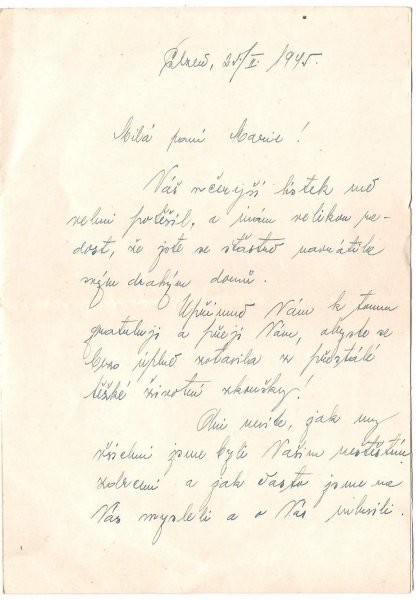 Plzeň, 25/V. 1945.
Milá paní Marie!
Váš včerejší lístek mě
velmi potěšil, a mám velikou ra-
dost, že jste se šťastně navrátila
svým drahým domů.
Upřímně Vám k tomu
gratuluji a přeji Vám, abyste se
brzo úplně zotavila z přestálé
těžké životní zkoušky!
Ani nevíte, jak my
všichni jsme byli Vašim neštěstím
zdrceni a jak často jsme na
Vás mysleli a o Vás mluvili.